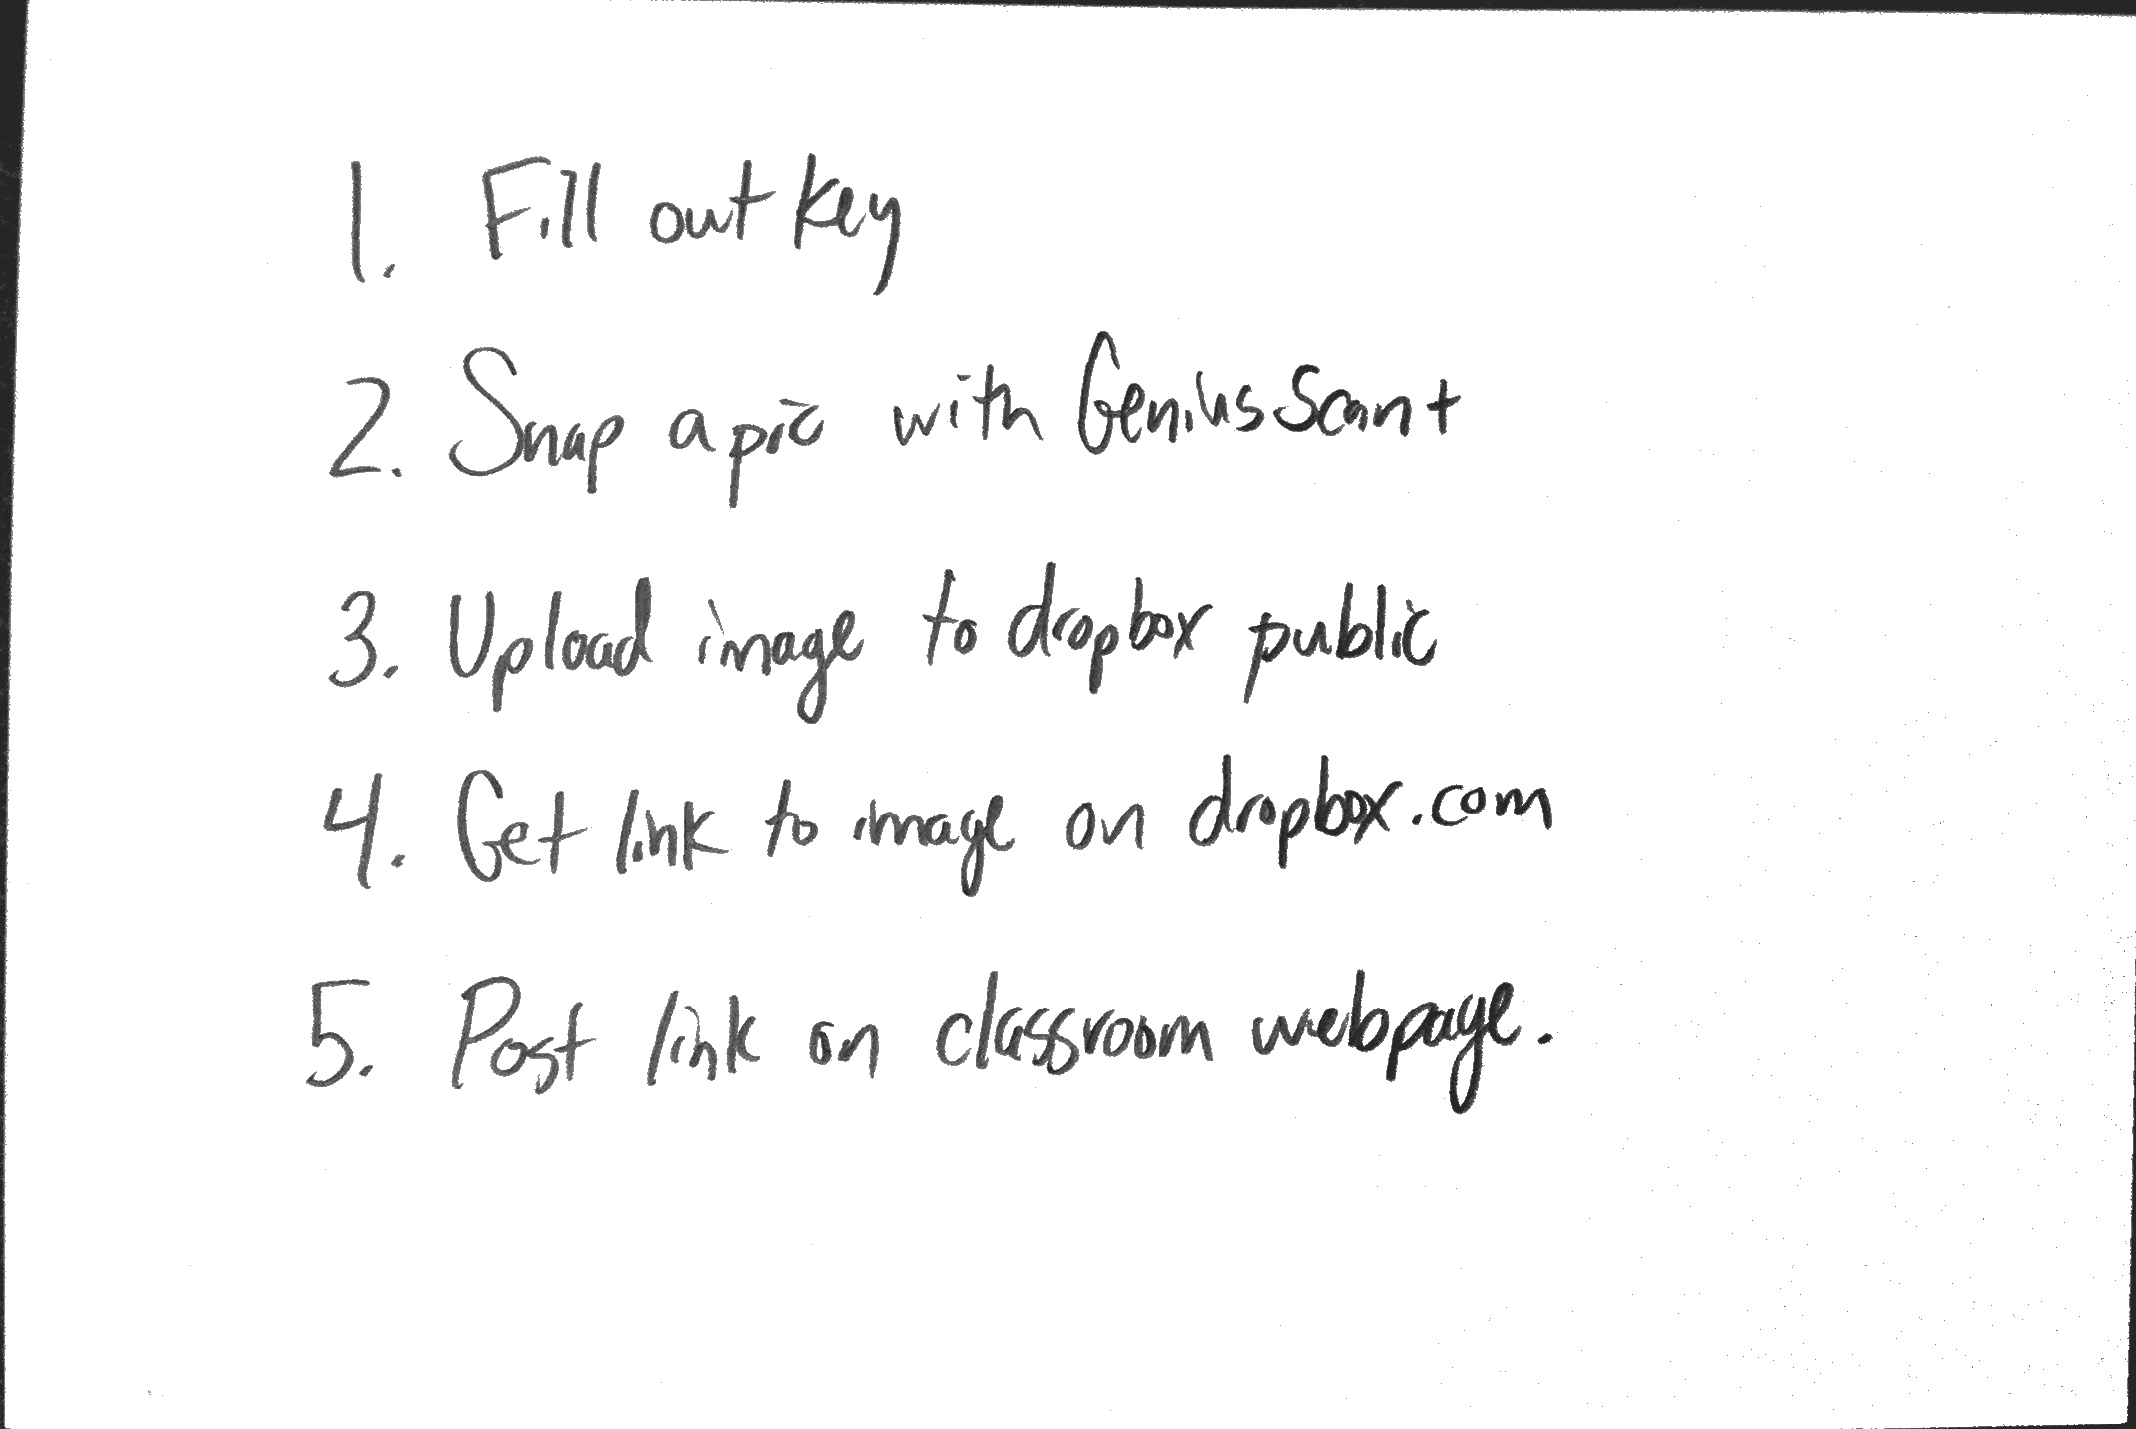 1. Fill out key
2. Snap a pic with Genius Scan+
3. Upload image to dropbox public
4. Get link to image on dropbox.com
5. Post link on classroom webpage.